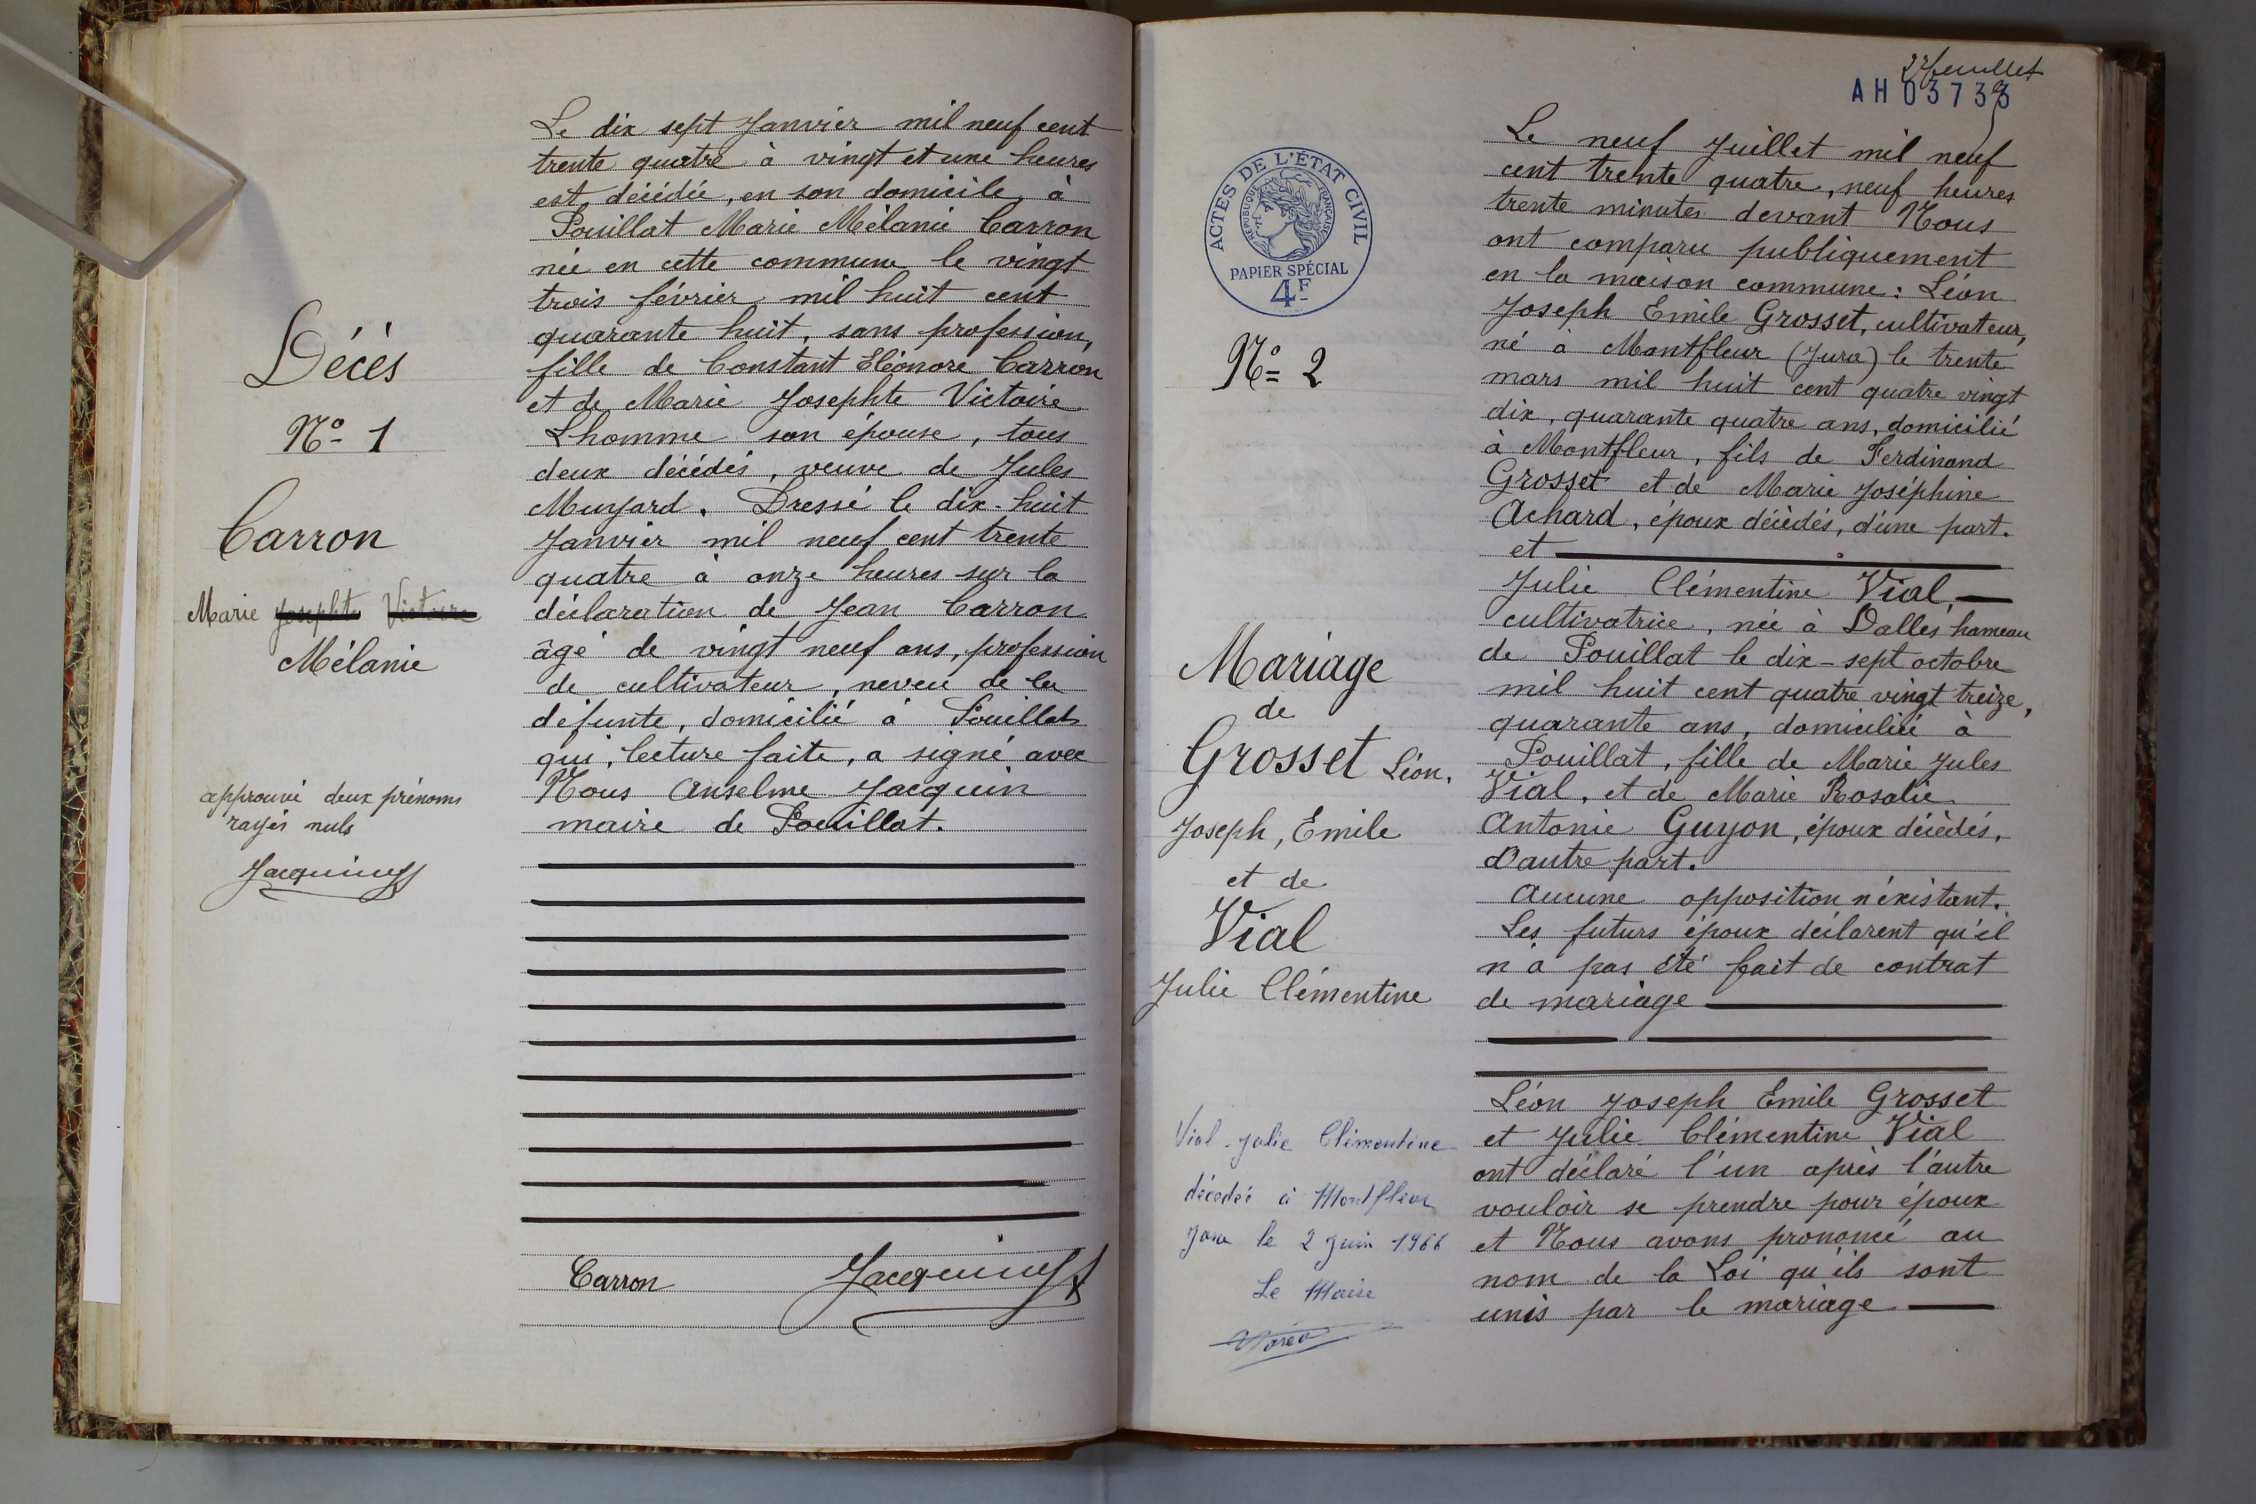 Décès
N° 1
Carron
Marie Josephte Victoire
Mélanie
approuvé deux prénoms
rayés nuls
Jacquin
Le dix sept Janvier mil neuf cent
trente quatre à vingt et une heures
est décédée, en son domicile à
Pouillat Marie Mélanie Carron
née en cette commune le vingt
trois février mil huit cent
quarante huit, sans profession,
fille de Constant Eléonore Carron
et de Marie Josephte Victoire
Lhomme son épouse, tous
deux décédés, veuve de Jules
Muyard. Dressé le dix-huit
Janvier mil neuf cent trente
quatre à onze heures sur la
déclaration de Jean Carron
âgé de vingt neuf ans, profession
de cultivateur, neveu de la
défunte, domicilié à Pouillat
qui, lecture faite, a signé avec
Nous Anselme Jacquin
maire de Pouillat.
Carron Jacquin
2e feuillet
AH 03733
ACTES DE L'ÉTAT CIVIL
RÉPUBLIQUE FRANÇAISE
PAPIER SPÉCIAL
4F
N° 2
Mariage
de
Grosset Léon,
Joseph, Emile
et de
Vial
Julie Clémentine
Vial Julie Clémentine
décédée à Montfleur
Jura le 2 Juin 1966
Le Maire
Le neuf Juillet mil neuf
cent trente quatre, neuf heures
trente minutes devant Nous
ont comparu publiquement
en la maison commune: Léon
Joseph Emile Grosset, cultivateur,
né à Montfleur (Jura) le trente
mars mil huit cent quatre vingt
dix, quarante quatre ans, domicilié
à Montfleur, fils de Ferdinand
Grosset et de Marie Joséphine
Achard, époux décédés, d'une part.
et
Julie Clémentine Vial,
cultivatrice, née à Dalles hameau
de Pouillat le dix-sept octobre
mil huit cent quatre vingt treize,
quarante ans, domiciliée à
Pouillat, fille de Marie Jules
Vial, et de Marie Rosalie
Antonie Guyon, époux décédés,
d'autre part.
Aucune opposition n'éxistant.
Les futurs époux déclarent qu'il
n'a pas été fait de contrat
de mariage
Léon Joseph Emile Grosset
et Julie Clémentine Vial
ont déclaré l'un après l'autre
vouloir se prendre pour époux
et Nous avons prononcé au
nom de la Loi qu'ils sont
unis par le mariage